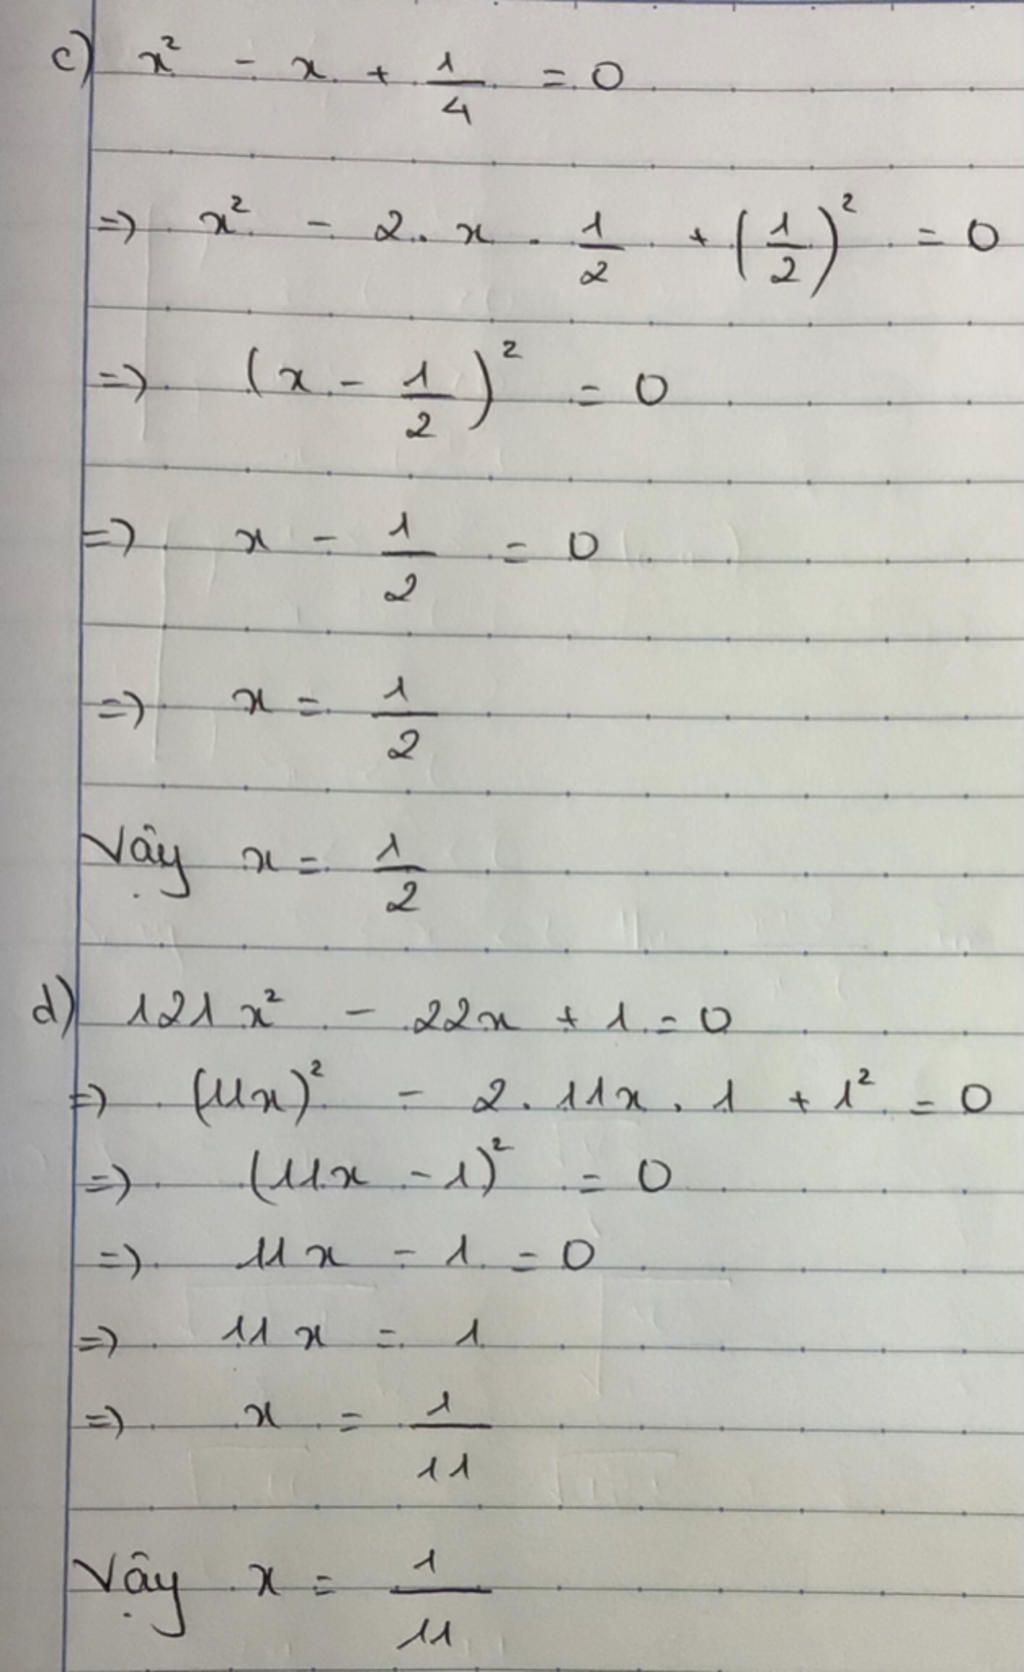 c) x² - x + 1/4 = 0
=> x² - 2. x . 1/2 + (1/2)² = 0
=> (x - 1/2)² = 0
=> x - 1/2 = 0
=> x = 1/2
Vậy x = 1/2
d) 121x² - 22x + 1 = 0
=> (11x)² - 2. 11x . 1 + 1² = 0
=> (11x - 1)² = 0
=> 11x - 1 = 0
=> 11x = 1
=> x = 1/11
Vậy x = 1/11